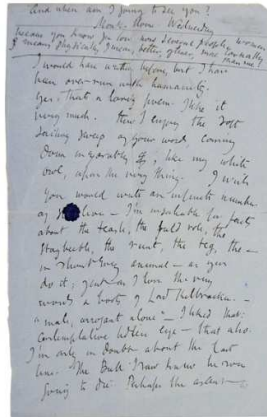 And when am I going to see you?
Monks House Wednesday
because you know you love now several people, women
I mean physically I mean, better, oftener, more carnally
than me?
I would have written before, but I have
been over run with humanity.
Yes, that's a lovely poem. I like it
very much. then I enjoy the soft
sailing sweep of your word, coming
down inexorably, like my white
owl, upon the very thing. I wish
you would write an infinite number
of – I'm insatiable for facts
about the teasle, the field vole, the
stagbeetle, the runt, the teg, the –
in short every animal – as you
do it; yes – I love the very
words
a male, arrogant alone – I liked that:
contemplative eye – that also.
I'm only in doubt about the last
line. The Bull I saw knew he was
going to die. Perhaps the